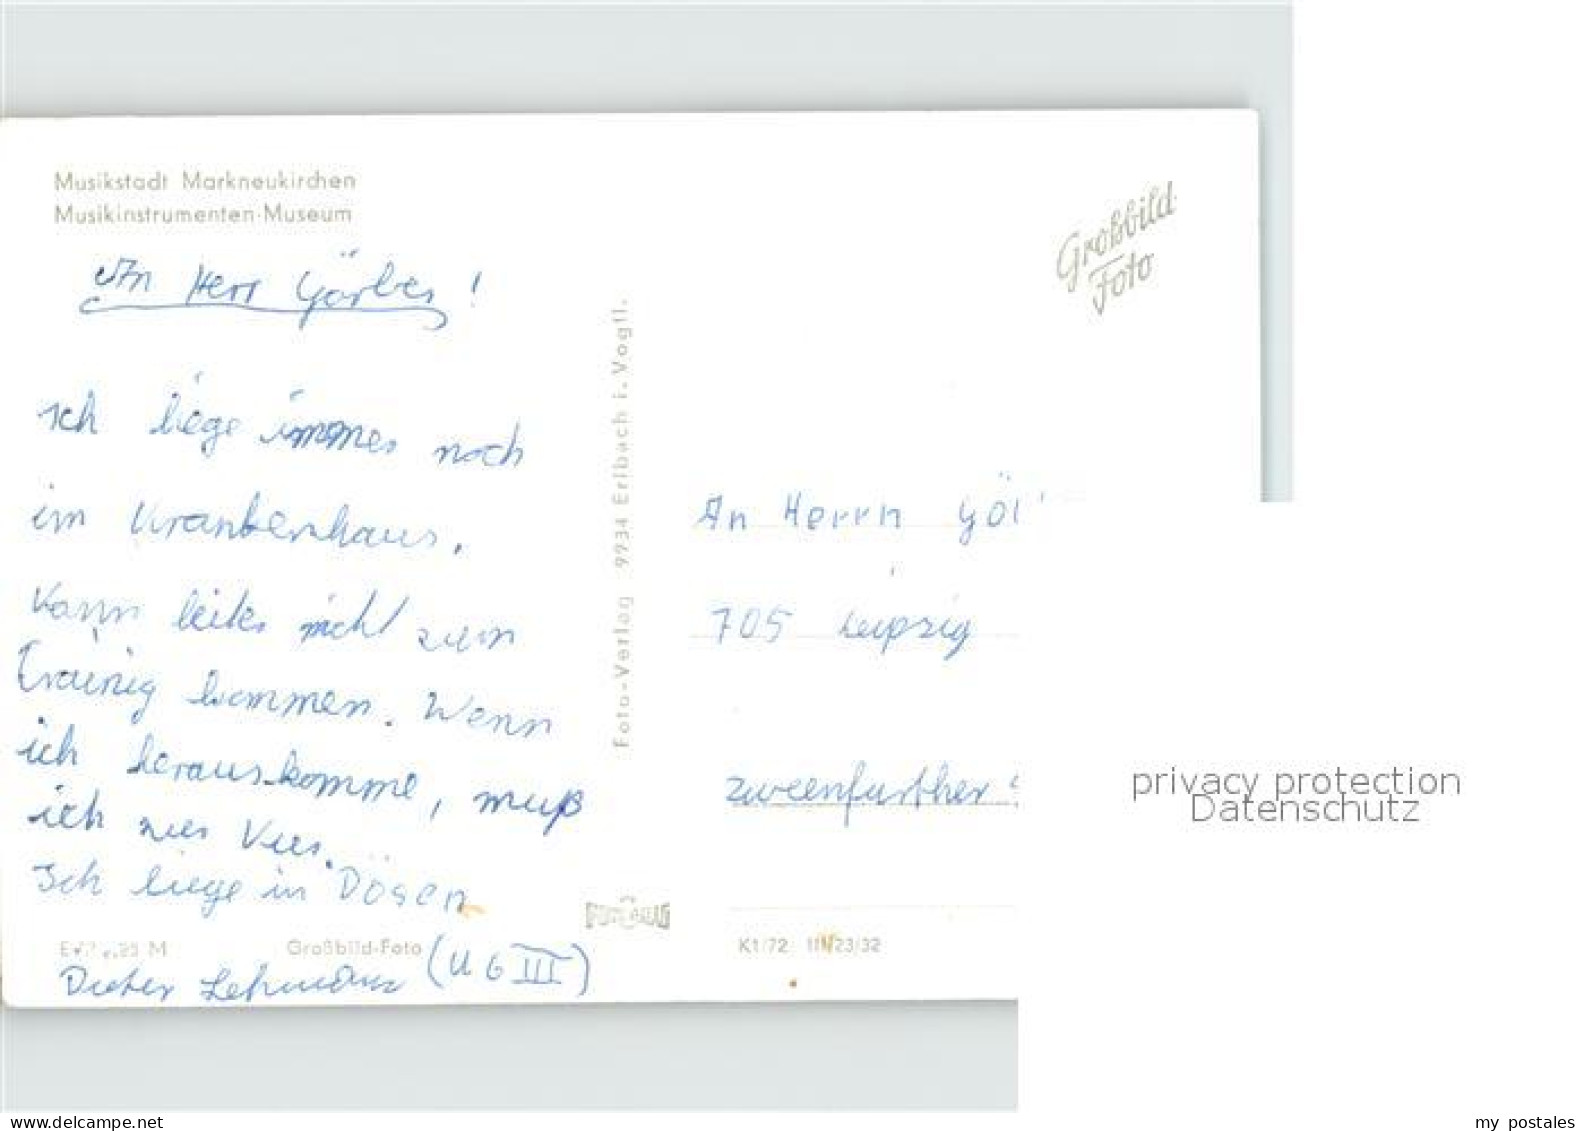 Musikstadt Markneukirchen
Musikinstrumenten-Museum
An Herr Görber !
Ich liege immer noch
im Krankenhaus.
Kann leider nicht zum
Trainig kommen. Wenn
ich herauskomme, muß
ich zur Kur.
Ich liege in Dösen
Großbild-Foto
Dieter Lehmann (U 6 III)
Foto-Verlag 9934 Erlbach i. Vogtl.
Großbild-
Foto
An Herrn
705 Leipzig
Zweenfurther
K1/72 III/23/32
privacy protection
Datenschutz
www.delcampe.net
my postales